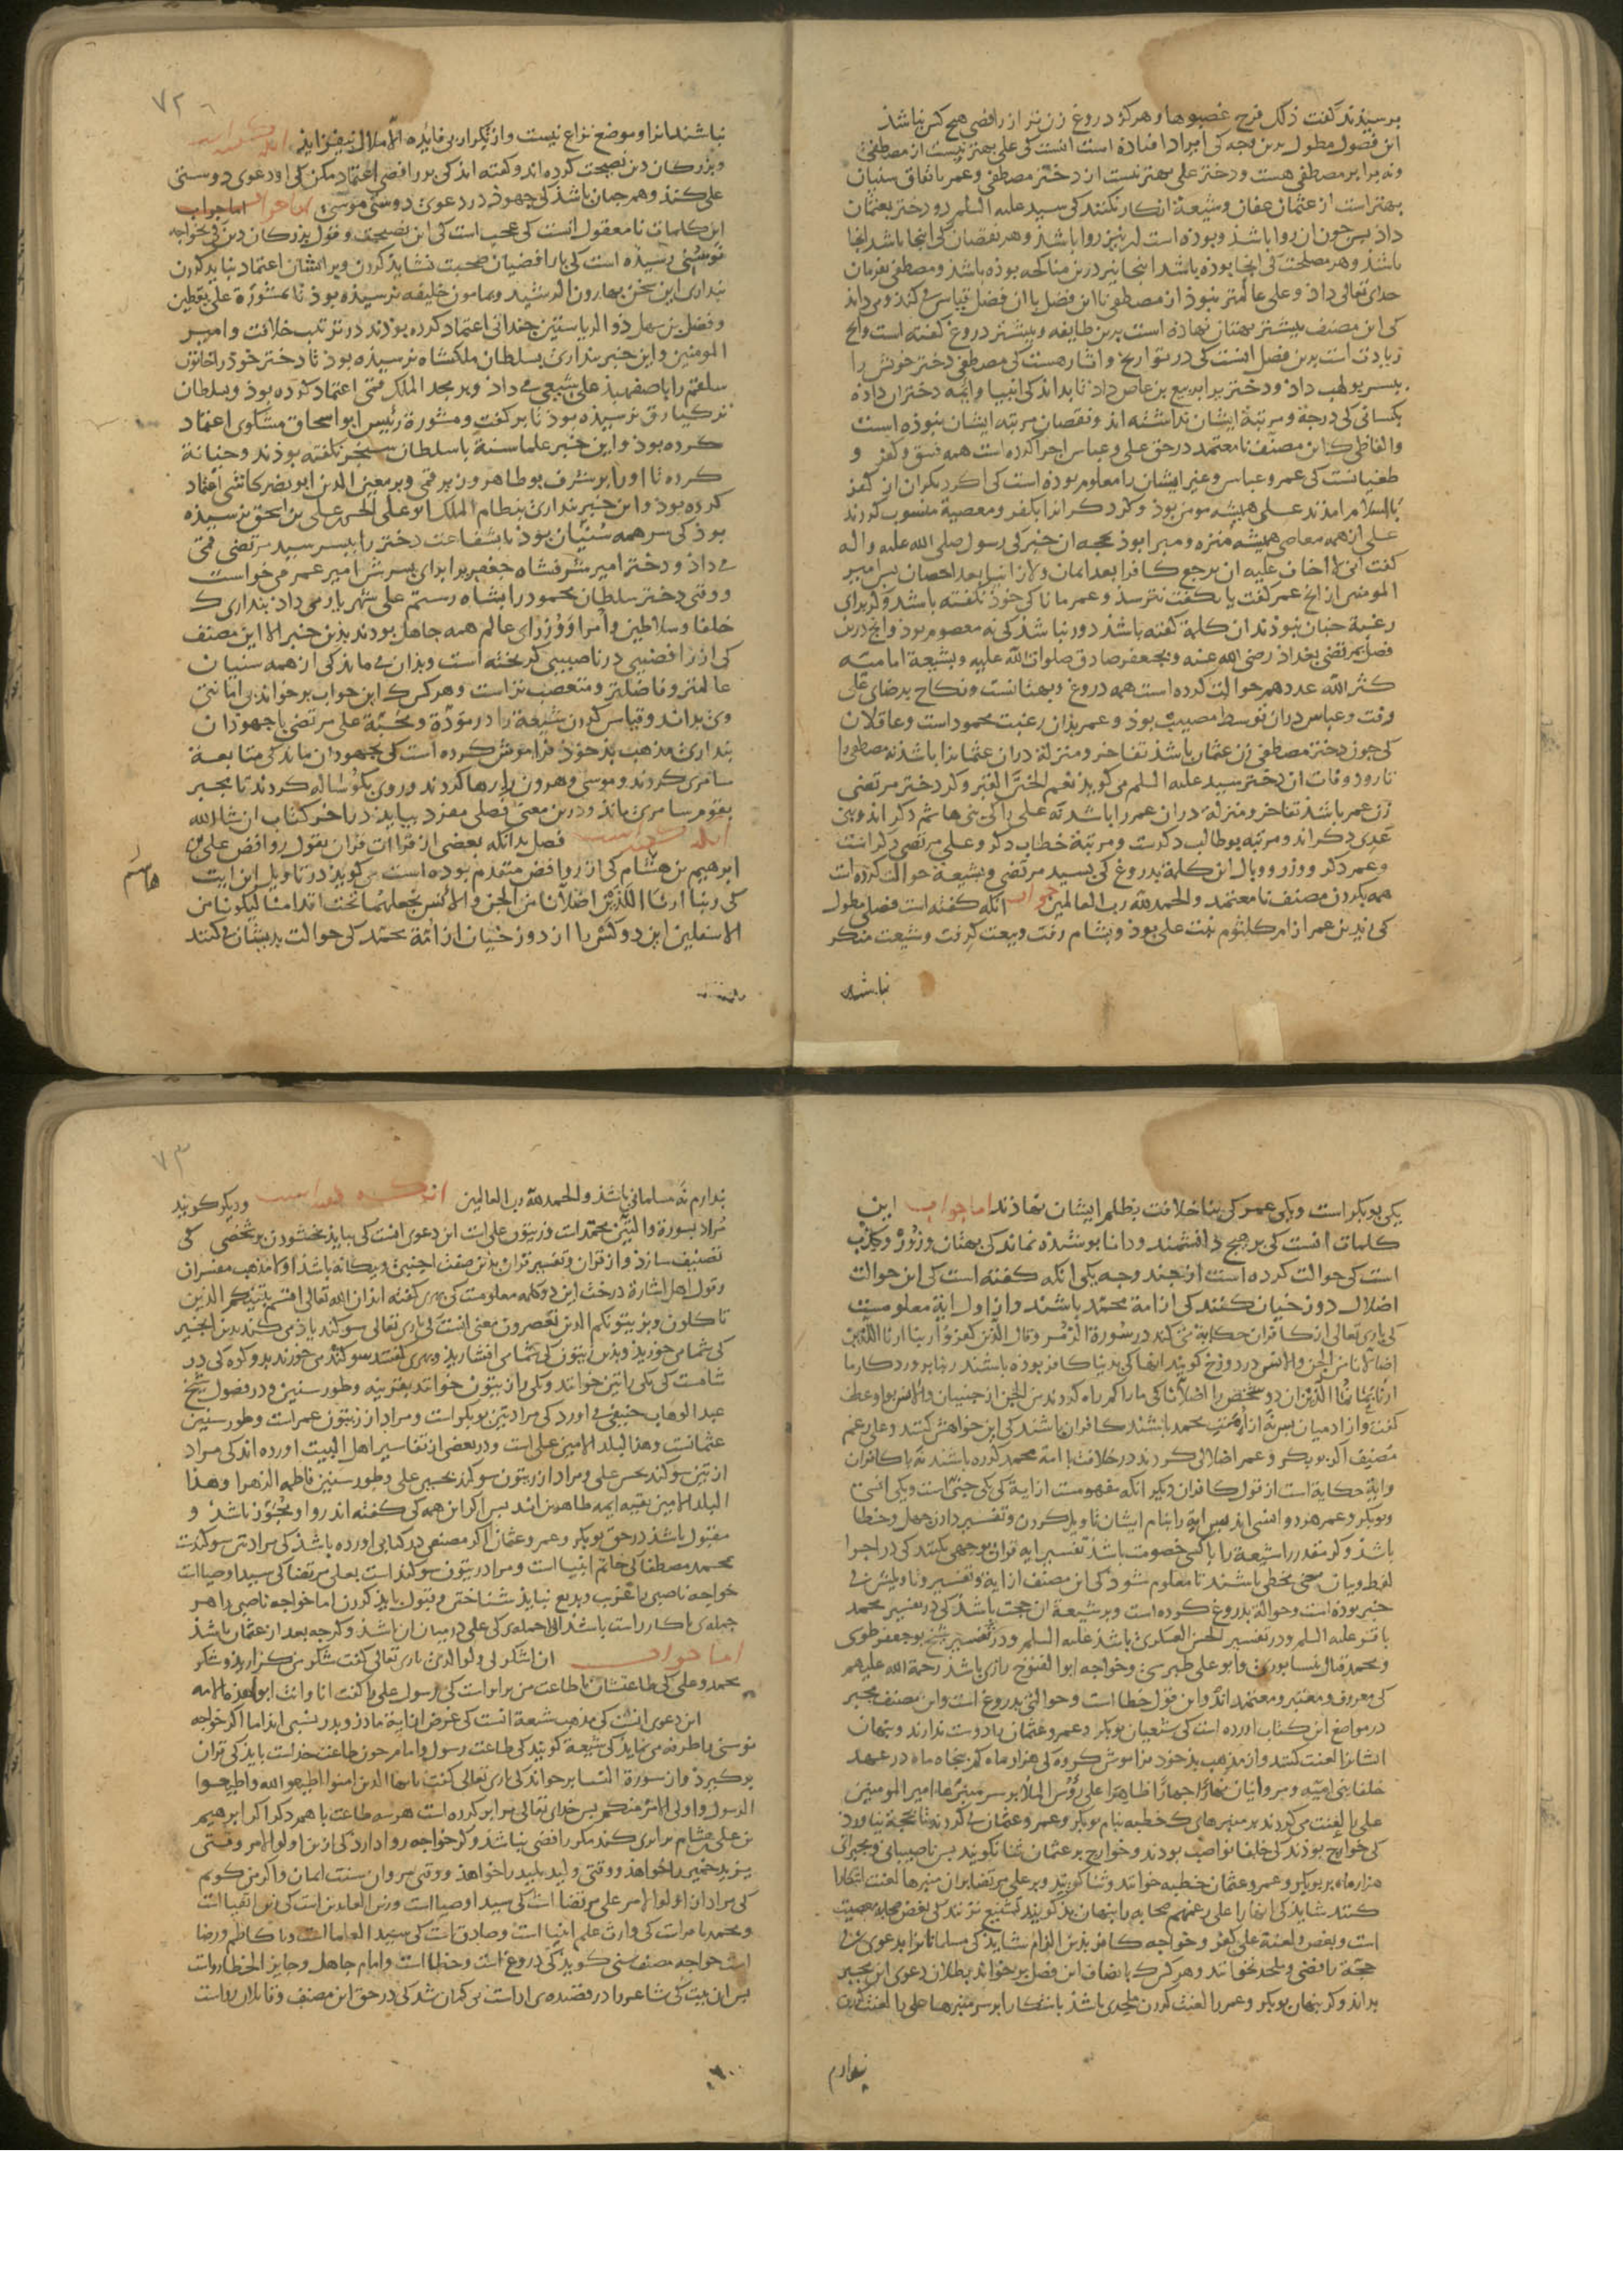 برسیذند کفت ذلک فرج غصبوها و هرکز دروغ زن تر از رافضی هیچ کس نباشذ
این فصول مطول بدین وجه کی ایراد افتاذه است انست کی علی بهتر نیست از مصطفی
و نه برابر مصطفی هست و دختر علی بهتر نیست از دختر مصطفی و عمر باتفاق سنیان
بهتر است از عثمان عفان و شیعة انکار نکنند کی سید علیه السلم دو دختر بعثمان
داذ بس جون ان روا باشذ و بوذه است این نیز روا باشذ و هر نقصان کی اینجا باشد انجا
باشذ و هر مصلحت کی انجا بوذه باشد اینجا نیز درین مناکحه بوذه باشذ و مصطفی بفرمان
خدای تعالی داذ و علی عالمتر نبوذ از مصطفی تا این فضل با ان فضل قیاس می کند و می داند
کی این مصنف بیشتر بهتان نهاذه است برین طایفه و بیشتر دروغ کفته است و انج
زیادت است برین فصل انست کی در تواریخ و اثار هست کی مصطفی دختر خویش را
ببسر بولهب داذ و دختر برابو ربیع بن عاص داذ تا بداند کی انبیا و ایمه دختران داذه
بکسانی کی درجه و مرتبة ایشان نداشته اند و نقصان مرتبه ایشان نبوذه است
والفاظی ک این مصنف نامعتمد در حق علی و عباس اجرا کرده است همه فسق و کفر و
طغیانست کی عمر و عباس و غیر ایشان را معلوم بوذه است کی اکر دیکران از کفر
باسلام امذند علی همیشه مومن بوذ و کر دکران را بکفر و معصیة منسوب کردند
علی از همه معاصی همیشه منزه و مبرا بوذ بحجه ان خبر کی رسول صلی الله علیه واله
کفت انی لا اخاف علیه ان یرجع کافرا بعد ایمان ولا زانیا بعد احصان بس امیر
المومنین از انج عمر کفت یا نکفت نترسذ و عمر مانا کی خوذ نکفته باشد و کر برای
رغبة جنان بیوندان کلمة کفته باشذ دور نباشذ کی نه معصوم بوذ و انج درین
فصل بمرتضی بغداذ رضی الله عنه و بجعفر صادق صلوات الله علیه و بشیعة امامیه
کثر الله عددهم حوالت کرده است همه دروغ و بهتانست و نکاح برضای علی
رفت و عباس دران توسط مصیب بوذ و عمر بذان رغبت محمود است و عاقلان
کی جون دختر مصطفی زن عثمان باشذ تفاخر و منزلة دران عثمانرا باشذ نه مصطفی را
تا روز وفات ان دختر سید علیه السلم می کوید نعم الختن القبر و کر دختر مرتضی
زن عمر باشذ تفاخر و منزله دران عمر را باشد نه علی را کی بنی هاشم دکر اند و بنی
عدی دکر اند و مرتبه بوطالب دکرست و مرتبة خطاب دکر و علی مرتضی دکر است
و عمر دکر و وزر و وبال این کلمة بدروغ کی بسید مرتضی و بشیعة حوالت کرده است
همه بکردن مصنف نامعتمد والحمد لله رب العالمین جواب انکه کفته است فصلی مطول
کی زید بن عمر از ام کلثوم بنت علی بوذ و بشام رفت و بیعت کرفت و شیعت منکر
نباشند
۷۲
نباشند انرا و موضع نزاع نیست و از تکرار بی فایذه الا ملال نیفزاید انکه کفته است
و بزرکان دین نصیحت کرده اند و کفته اند کی بر رافضی اعتماد مکن کی او دعوی دوستی
علی کند و همجنان باشذ کی جهوذ در دعوی دوستی موسی اما جواب اما جواب
این کلمات نامعقول انست کی عجب است کی این نصیحت و قول بزرکان دین کی بخواجه
نوسنی رسیذه است کی با رافضیان صحبت نشاید کردن و بر ایشان اعتماد نباید کردن
بنداری این سخن بهارون الرشید و بمامون خلیفه نرسیذه بوذ تا بمشورة علی یقطین
و فضل بن سهل ذو الریاستین جندانی اعتماد کرده بودند در ترتیب خلافت و امیر
المومنین و این خبر بنداری بسلطان ملکشاه نرسیذه بوذ تا دختر خوذ را خاتون
سلقم را باصفهبذ علی شیعی می داذ و بر مجد الملک قمی اعتماد کرده بوذ و بسلطان
برکیارق نرسیذه بوذ تا برکفت و مشورة رئیس ابو اسحاق مشکوی اعتماد
کرده بوذ و این خبر علما سنة با سلطان سنجر نکفته بوذند و خیانة
کرده تا او با بوشرف بوطاهر وزیر قمی و بر معین الدین ابو نصر کاشی اعتماد
کرده بوذ و این خبر بنداری بنظام الملک ابو علی الحسن علی بن اسحق نرسیذه
بوذ کی سر همه سنیان بوذ تا بشفاعت دختر را ببسر سید مرتضی قمی
می داذ و دختر امیر شرفشاه جعفری را برای بسرش امیر عمر می خواست
و وقتی دختر سلطان محمود را بشاه رستم علی شهریار می داذ بنداری ک
خلفا و سلاطین و امرا و وزرای عالم همه جاهل بودند بذین خبر الا این مصنف
کی از رافضیی در ناصبیی کریخته است و بذان می ماند کی از همه سنیان
عالمتر و فاضلتر و متعصب تر است و هرکس ک این جواب برخواند بی امانتی
وی بداند و قیاس کردن شیعة را در مودة و محبة علی مرتضی با جهوذان
بنداری مذهب بذ خوذ فراموش کرده است کی بجهودان ماند کی متابعة
سامری کردند و موسی و هرون را رها کردند و روی بکوساله کردند تا مجبر
بقوم سامری ماند و درین معنی فصلی مفرد بیاید در اخر کتاب ان شا الله
انکه کفته است فصل بدانکه بعضی از قراات قران بقول روافض علی بن
ابرهیم بن هشام کی از روافض متقدم بوده است می کوید در تاویل این ایت
هاشم
کی ربنا ارنا اللذین اضلانا من الجن والانس نجعلهما تحت اقدامنا لیکونا من
الاسفلین این دو کس را از دوزخیان از ائمة محمد کی حوالت بدیشان می کنند
یکی بوبکر است و یکی عمر کی بنا خلافت بظلم ایشان نهاذند اما جواب این
کلمات انست کی بر هیچ دانشمند و دانا بوشیذه نماند کی بهتان و زور و کذب
است کی حوالت کرده است از جند وجه یکی انکه کفته است کی این حوالت
اضلال دوزخیان کنند کی از امة محمد باشند و از اول ایة معلومست
کی باری تعالی از کافران حکایة می کند در سورة وقال الذین کفروا ربنا ارنا اللذین
اضلانا من الجن والانس در دوزخ کویند انها کی بدنیا کافر بوذه باشند ربنا بروردکار ما
کفت و از ادمیان بس نه از امت محمد باشند کافران باشند کی این خواهش کنند و علی رغم
مصنف اکر بوبکر و عمر اضلالی کردند در خلافت با امة محمد کرده باشند نه با کافران
و ایة حکایة است از قول کافران دیکر انکه مفهومست از ایة کی یکی جنی است و یکی انسی
و بوبکر و عمر هر دو انسی اند بس ایة را بنام ایشان تاویل کردن و تفسیر دادن جهل و خطا
باشذ و کر مقدر شیعة را با کسی خصومت باشذ تفسیر ایه قران بوجهی نکنند کی در اجرا
لفظ و بیان معنی مخطی باشند تا معلوم شود کی این مصنف از ایة و تفسیر و تاویلش بی
خبر بوده است و حوالة بدروغ کرده است و بر شیعة ان حجت باشذ کی در تفسیر محمد
باقر علیه السلم و در تفسیر الحسن العسکری باشذ علیه السلم و در تفسیر شیخ بوجعفر طوسی
و محمد فتال نیسابوری و ابو علی طبرسی و خواجه ابو الفتوح رازی باشذ رحمة الله علیهم
کی معروف و معتبر و معتمد اند و این قول خطا است و حوالتی بدروغ است و این مصنف مجبر
در مواضع این کتاب اورده است کی شیعیان بوبکر و عمر و عثمان را دوست ندارند و بنهان
ایشانرا لعنت کنند و از مذهب بذ خود فراموش کرده کی هزار ماه کم بنجاه ماه در عهد
خلفا بنی امیه و مروانیان نهارا جهارا ظاهرا علی رؤس الملا بر سر منبرها امیر المومنین
علی را لعنت می کردند بر منبرهای ک خطبه بنام بوبکر و عمر و عثمان می کردند تا بحجة نیاورد
کی خوارج بوذند کی خلفا نواصب بودند و خوارج بر عثمان ثنا نکویند بس ناصبیانی و مجبرانی
هزار ماه بر بوبکر و عمر و عثمان خطبه خوانند و ثنا کویند و بر علی مرتضا بران منبرها لعنت اشکارا
کنند شاید کی اینها را علی رغمهم صحابه را بنهان بذ کویند تشنیع نزنند کی بغض صحابه معصیت
است و بغض و لعنة علی کفر و خواجه کافر بذین الزام شاید کی مسلمانانرا بدعوی بی
حجة رافضی و ملحد نخواند و هرکس ک بانصاف این فصل برخواند بطلان دعوی این مجبر
بداند و کر بنهان بوبکر و عمر را لعنت کردن ملحدی باشذ باشکارا بر سر منبرها علی را لعنت کردن
بندارم
۷۳
بندارم نه مسلمانی باشذ والحمد لله رب العالمین انکه کفته است و دیکر کویند
مراد بسورة والتین محمد است و زیتون علی است این دعوی انست کی بباید بخشودن بر شخصی کی
تصنیف سازد و از قران و تفسیر قران بذین صفت اجنبی و بیکانه باشذ اولا مذهب مفسران
و قول اهل اشارة درحق این دو کلمه معلومست کی کفته اند ان الله تعالی اقسم بتینکم الذین
تاکلون و بزیتونکم الذین تعصرون معنی انست کی باری تعالی سوکند یاذ می کند بدین انجیر
کی شما می خورید و بذین زیتون کی شما می افشارید و بهری کفتند سوکند می خورند بدو کوه کی در
شامست کی یکی را تین خوانند و یکی را زیتون خوانند بقرینه وطور سنین و در فصول شیخ
عبد الوهاب حنیفی می اورد کی مراد بتین بوبکر است و مراد از زیتون عمر است وطور سنین
عثمانست وهذا البلد الامین علی است و در بعضی از تفاسیر اهل البیت اورده اند کی مراد
از تین سوکند بحسن علی و مراد از زیتون سوکند بحسین علی وطور سنین فاطمه الزهرا وهذا
البلد الامین بقیه ایمه طاهرین اند بس اکر این همه کی کفته اند روا و مجوز باشذ و
مقبول باشذ درحق بوبکر و عمر و عثمان اکر مصنفی در کتابی اورده باشذ کی مراد بتین سوکندست
بمحمد مصطفا کی خاتم انبیا است و مراد زیتون سوکند است بعلی مرتضا کی سید اوصیا است
خواجه ناصبی را غریب و بدیع نباید شناختن و قبول باید کردن اما خواجه ناصبی را هر
جمله‌ی باکار راست باشذ الا جمله‌ی کی علی در میان ان باشذ و کرجه بعد از عثمان باشذ
اما جواب ان اشکر لی ولوالدیک باری تعالی کفت شکر من کزارید و شکر
محمد و علی کی طاعتشان با طاعت من برابر است کی رسول علی را کفت انا وانت ابوا هذه الامه
این دعوی انست کی مذهب شیعة انست کی غرض از این ایة ماذر و بدر نسبی اند اما اکر خواجه
نوسنی را طرفه می نماید کی شیعة کویند کی طاعت رسول و امام جون طاعت خداست باید کی قران
برکیرد و از سورة النسا برخواند کی باری تعالی کفت یا ایها الذین امنوا اطیعوا الله واطیعوا
الرسول واولی الامر منکم بس خدای تعالی برابر کرده است هر سه طاعت با همدکر اکر ابرهیم
بن علی هشام برابری کند مکر رافضی نباشذ و کر خواجه روا دارد کی ازین اولوا الامر وقتی
یزید خمیر را خواهذ و وقتی ولید بلید را خواهذ و وقتی مروان سنت ایمان و اکر من کویم
کی مراد ان اولوا الامر علی مرتضا است کی سید اوصیا است و زین العابدین است کی زین اتقیا است
و محمد باقر است کی وارث علم انبیا است و صادق است کی سید العلما است و با کاظم و رضا
است خواجه مصنف سنی کوید کی دروغ است و خطا است و امام جاهل و جایز الخطا روا است
بس این بیت کی شاعر را در قصیده‌ی ایراد است بی کمان شد کی درحق این مصنف و قائلان راست